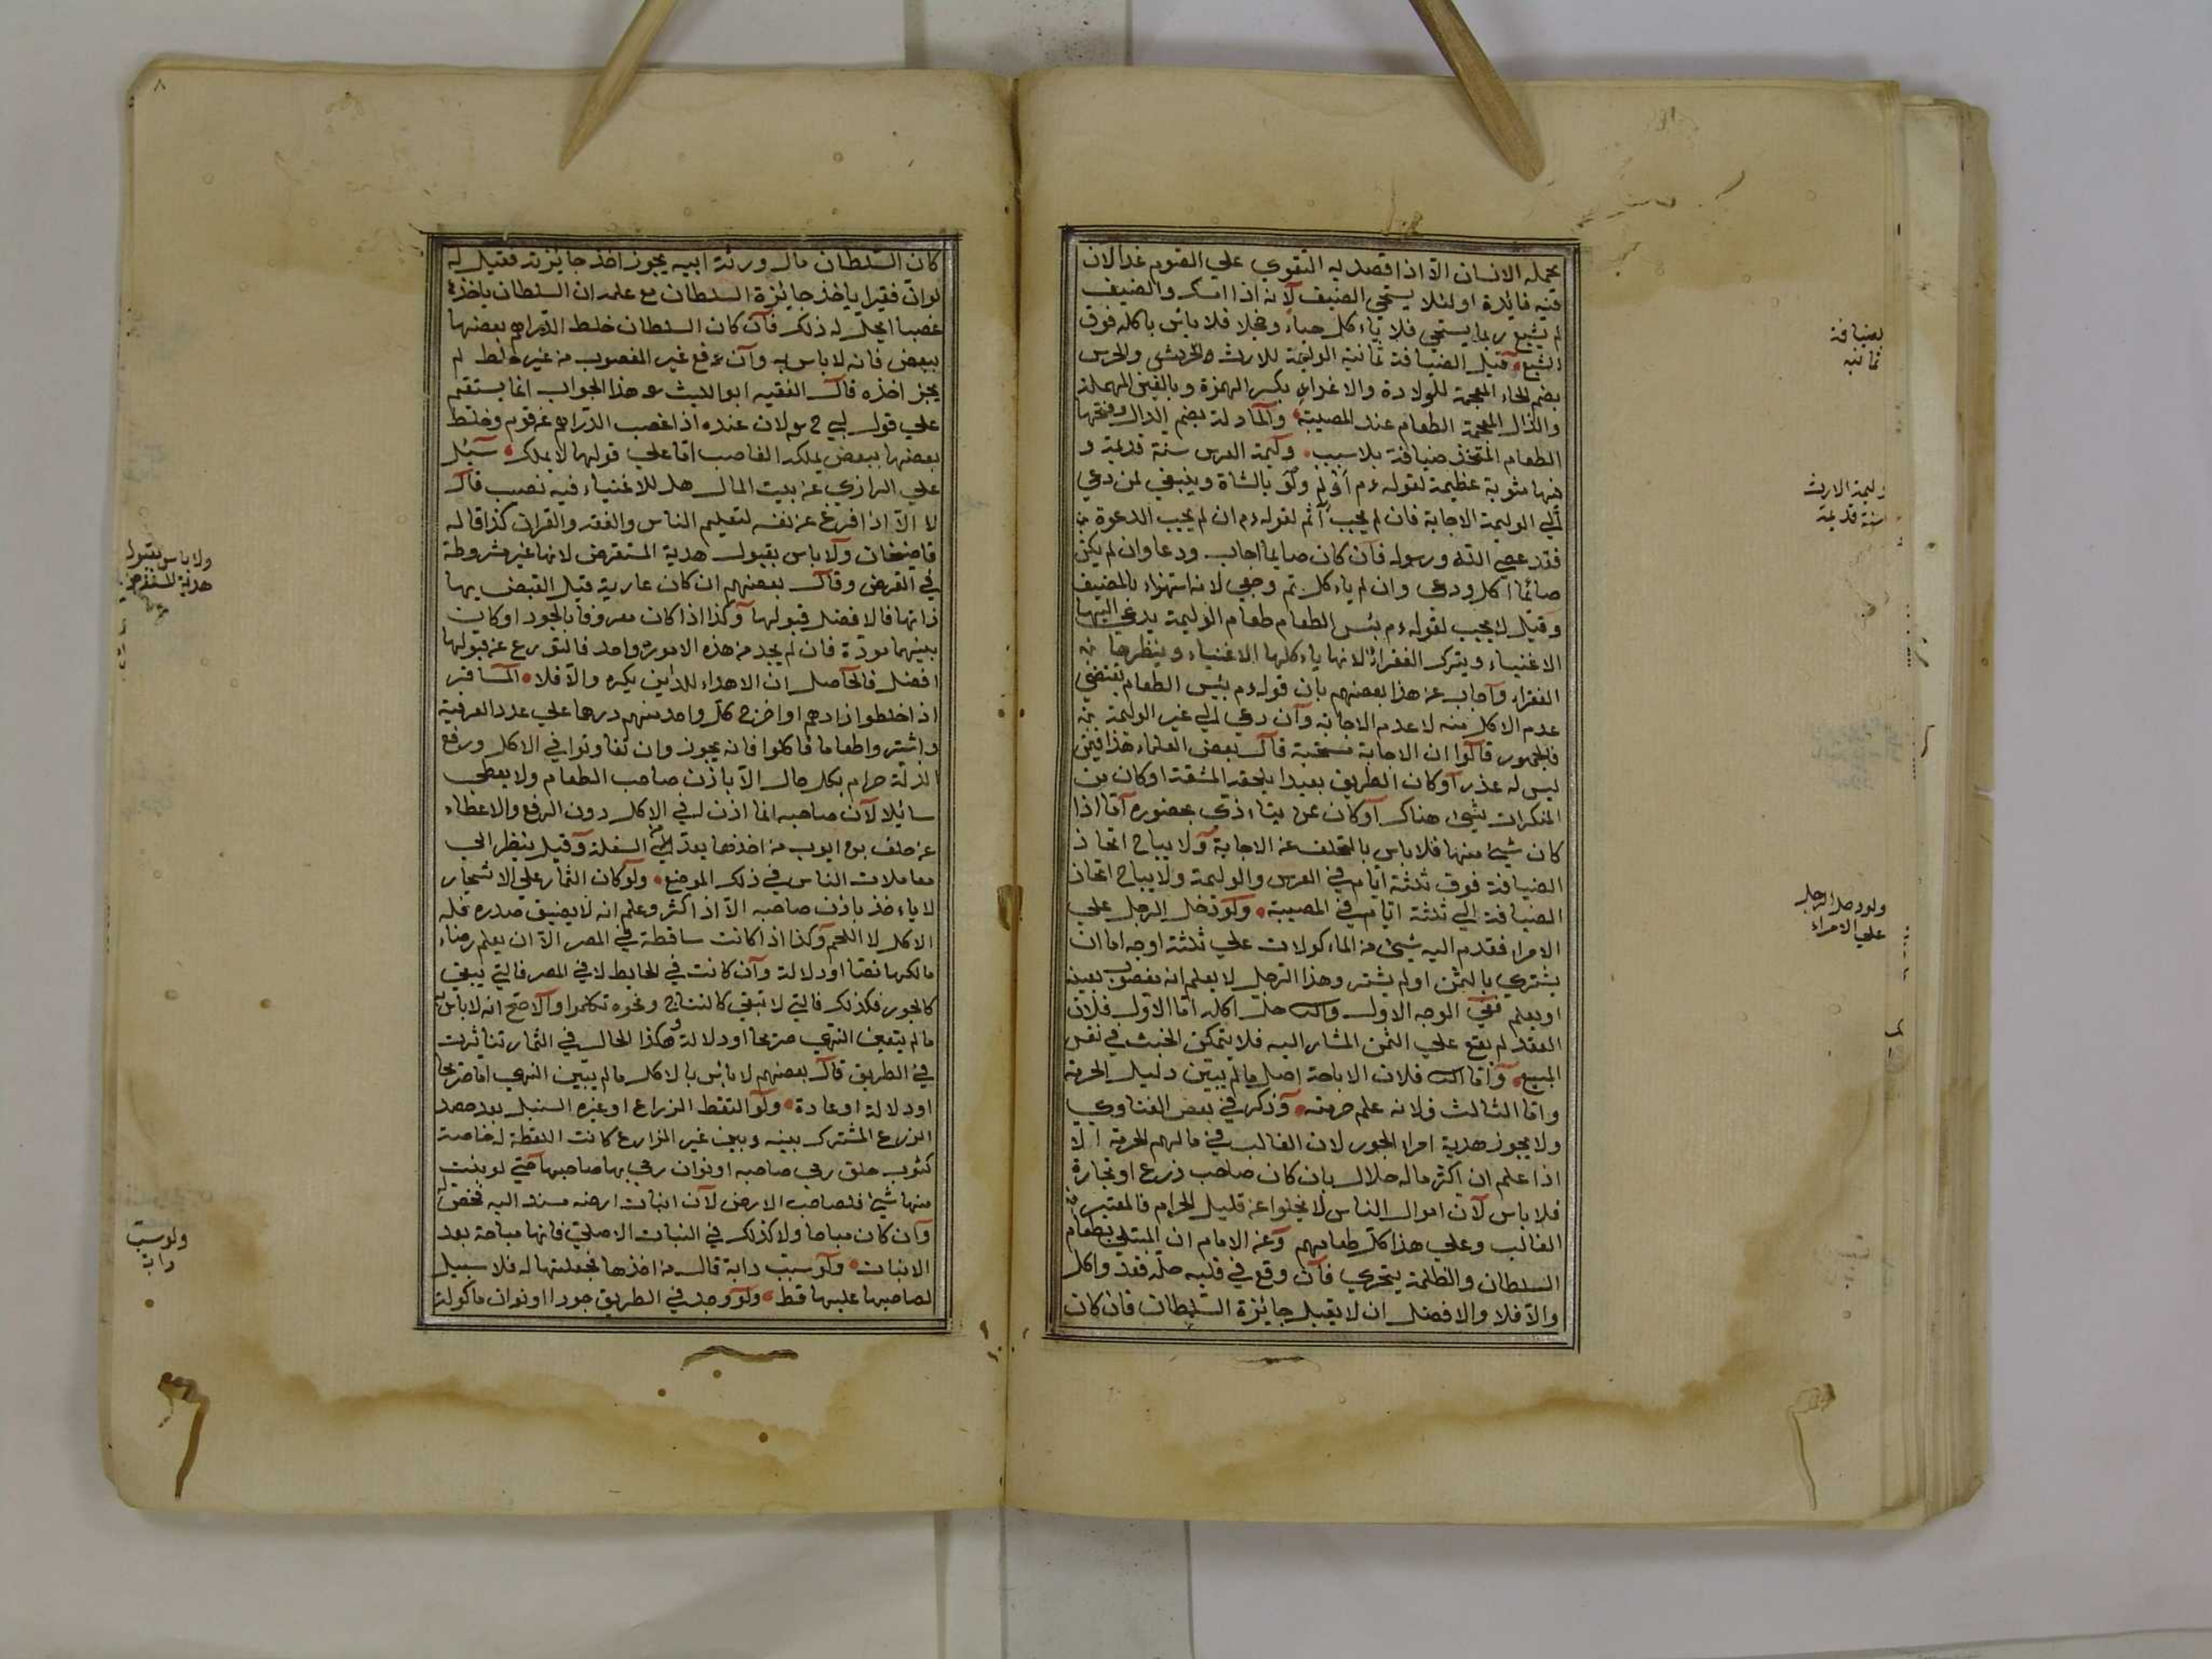 يحمله الانسان الا اذا قصد به التقوي علي الصوم غدا لان
فيه فائدة او لئلا يستحي الضيف لانه اذا امسك والضيف
لم يشبع ربما يستحي فلا ياءكل حياء وخجلا فلا باس باكله فوق
الشبع قيل الضيافة ثمانية الوليمة للارث والخرس
بضم الخاء المعجمة للولادة والاعذار بكسر الهمزة وبالعين المهملة
والذال المعجمة الطعام عند المصيبة والمأدلة بضم الدال وفتحها
الطعام المتخذ ضيافة بلا سبب وليمة العرس سنة قديمة و
فيها مثوبة عظيمة لقوله ءم أولم ولو بالشاة وينبغي لمن دعي
الي الوليمة الاجابة فان لم يجب آثم لقوله ءم ان لم يجب الدعوة
فقد عصي الله ورسوله فان كان صايما اجاب ودعا وان لم يكن
صائما اكل ودعى وان لم ياءكل ثم وجي لانه استهزاء بالمضيف
وقيل لا يجب لقوله ءم بئس الطعام طعام الوليمة يدعي اليها
الاغنياء ويترك الفقراء لانها ياءكلها الاغنياء وينظرها
الفقراء واجاب عن هذا بعضهم بان قوله ءم بئس الطعام يقتضي
عدم الاكل منه لا عدم الاجابة وان دعي الي غير الوليمة
فالجمهور قالوا ان الاجابة مستحبة قال بعض العلماء هذا فيمن
ليس له عذر او كان الطريق بعيدا يلحقه المشقة او كان من
المنكرات شيئ هناك او كان عن يتاءذي بحضوره اما اذا
كان شيئ منها فلا باس بالتخلف عن الاجابة ولا يباح اتخاذ
الضيافة فوق ثلثة ايام في العرس والوليمة ولا يباح اتخاذ
الضيافة الي ثلثة ايام في المصيبة ولو دخل الرجل علي
الامراء فقدم اليه شيئ من الماءكولات علي ثلثة اوجه اما ان
يشتري بالثمن او لم يشتر وهذا الرجل لا يعلم انه مغصوب بعينه
او يعلم ففي الوجه الاول حل اكله اما الاول فلان
العقد لم يقع علي الثمن المشار اليه فلا يتمكن الخبث في نفس
المبيع واما فلان الاباحة اصل ما لم يتبين دليل الحرمة
واما الثالث فلانه علم حرمته وذكر في بعض الفتاوي
ولا يجوز هدية امراء الجور لان الغالب في مالهم الحرمة الا
اذا علم ان اكثر ماله حلال بان كان صاحب زرع او تجارة
فلا باس لان اموال الناس لا يخلوا عن قليل الحرام فالمعتبر
الغالب وعلي هذا كل طعامهم وعن الامام ان المبتلي بطعام
السلطان والظلمة يتحري فان وقع في قلبه حله فقد واكل
والا فلا والافضل ان لا يقبل جايزة السلطان فان كان
بضيافة
ثمانية
وليمة الارث
سنة قديمة
ولو دخل الرجل
علي الامراء
٨
كان السلطان مال ورثة ابيه يجوز اخذ جايزته فقيل له
لو ان فقيرا ياخذ جائزة السلطان مع علمه ان السلطان ياخذه
غصبا ايحل له ذلك فان كان السلطان خلط الدراهم بعضها
ببعض فانه لا باس به وان دفع غير المغصوب من غير خلط لم
يجز اخذه قال الفقيه ابو الليث هذا الجواب انما يستقيم
علي قول لان عنده اذا غصب الدراهم من قوم وخلط
بعضها ببعض يملكه الغاصب اما علي قولهما لا يملك سئل
علي الرازي عن بيت المال هل للاغنياء فيه نصيب قال
لا الا اذا فرغ عن نفسه لتعليم الناس والفقه والقران كذا قاله
قاضيخان ولا باس بقبول هدية المستقرض لانها غير مشروطة
في القرض وقال بعضهم ان كان عارية قبل القبض بها
ذانها فالافضل قبولها وكذا اذا كان معروفا بالجود او كان
بينهما مودة فان لم يجد من هذه الامور واحد فالتورع عن قبولها
افضل فالحاصل ان الاهداء للدين يكره والا فلا المسافر
اذا خلطوا زادهم او اخرج كل واحد منهم درهما علي عدد الفرقة
واشتروا طعاما فاكلوا فانه يجوز وان تفاوتوا في الاكل ورفع
الزلة حرام بكل حال الا باذن صاحب الطعام ولا يعطي
سائلا لان صاحبه انما اذن له في الاكل دون الرفع والاعطاء
عن خلف بن ايوب من اخذها يعد من السفلة وقيل ينظر الي
معاملات الناس في ذلك الموضع ولو كان الثمار علي الاشجار
لا ياءخذ باذن صاحبه الا اذا كثر وعلم انه لا يضيق صدره فله
الاكل لا اللحم وكذا اذا كانت ساقطة في المصر الا ان يعلم رضاء
مالكها نصا او دلالة وان كانت في الحايط لا في المصر فالتي تبقي
كالجوز فكذلك فالتي لا تبقي ونحوه تكلموا والاصح انه لا باس به
ما لم يتعين النهي صريحا او دلالة وهكذا الحال في الثمار تناثرت
في الطريق قال بعضهم لا باس بالاكل ما لم يبين النهي اما صريحا
او دلالة او عادة ولو التقط الزراع او غيره السنبل بعد حصد
الزرع المشترك بينه وبين غير المزارع كانت اللقطة له خاصة
كثوب خلق رمي صاحبه او نوان رمي بها صاحبها حتي لو ينبت
منها شيئ فلصاحب الارض لان انبات ارضه مسند اليه فخص له
وان كان مباحا ولا كذلك في النبات الاصلي فانها مباحة بعد
الانبات ولو سيب دابة قال من اخذها فجعلتها له فلا سبيل
لصاحبها عليها قط ولو وجد في الطريق جوزا او نوان ماكولة
ولا باس بقبول
هدية المستقرض
ولو سيب
دابة